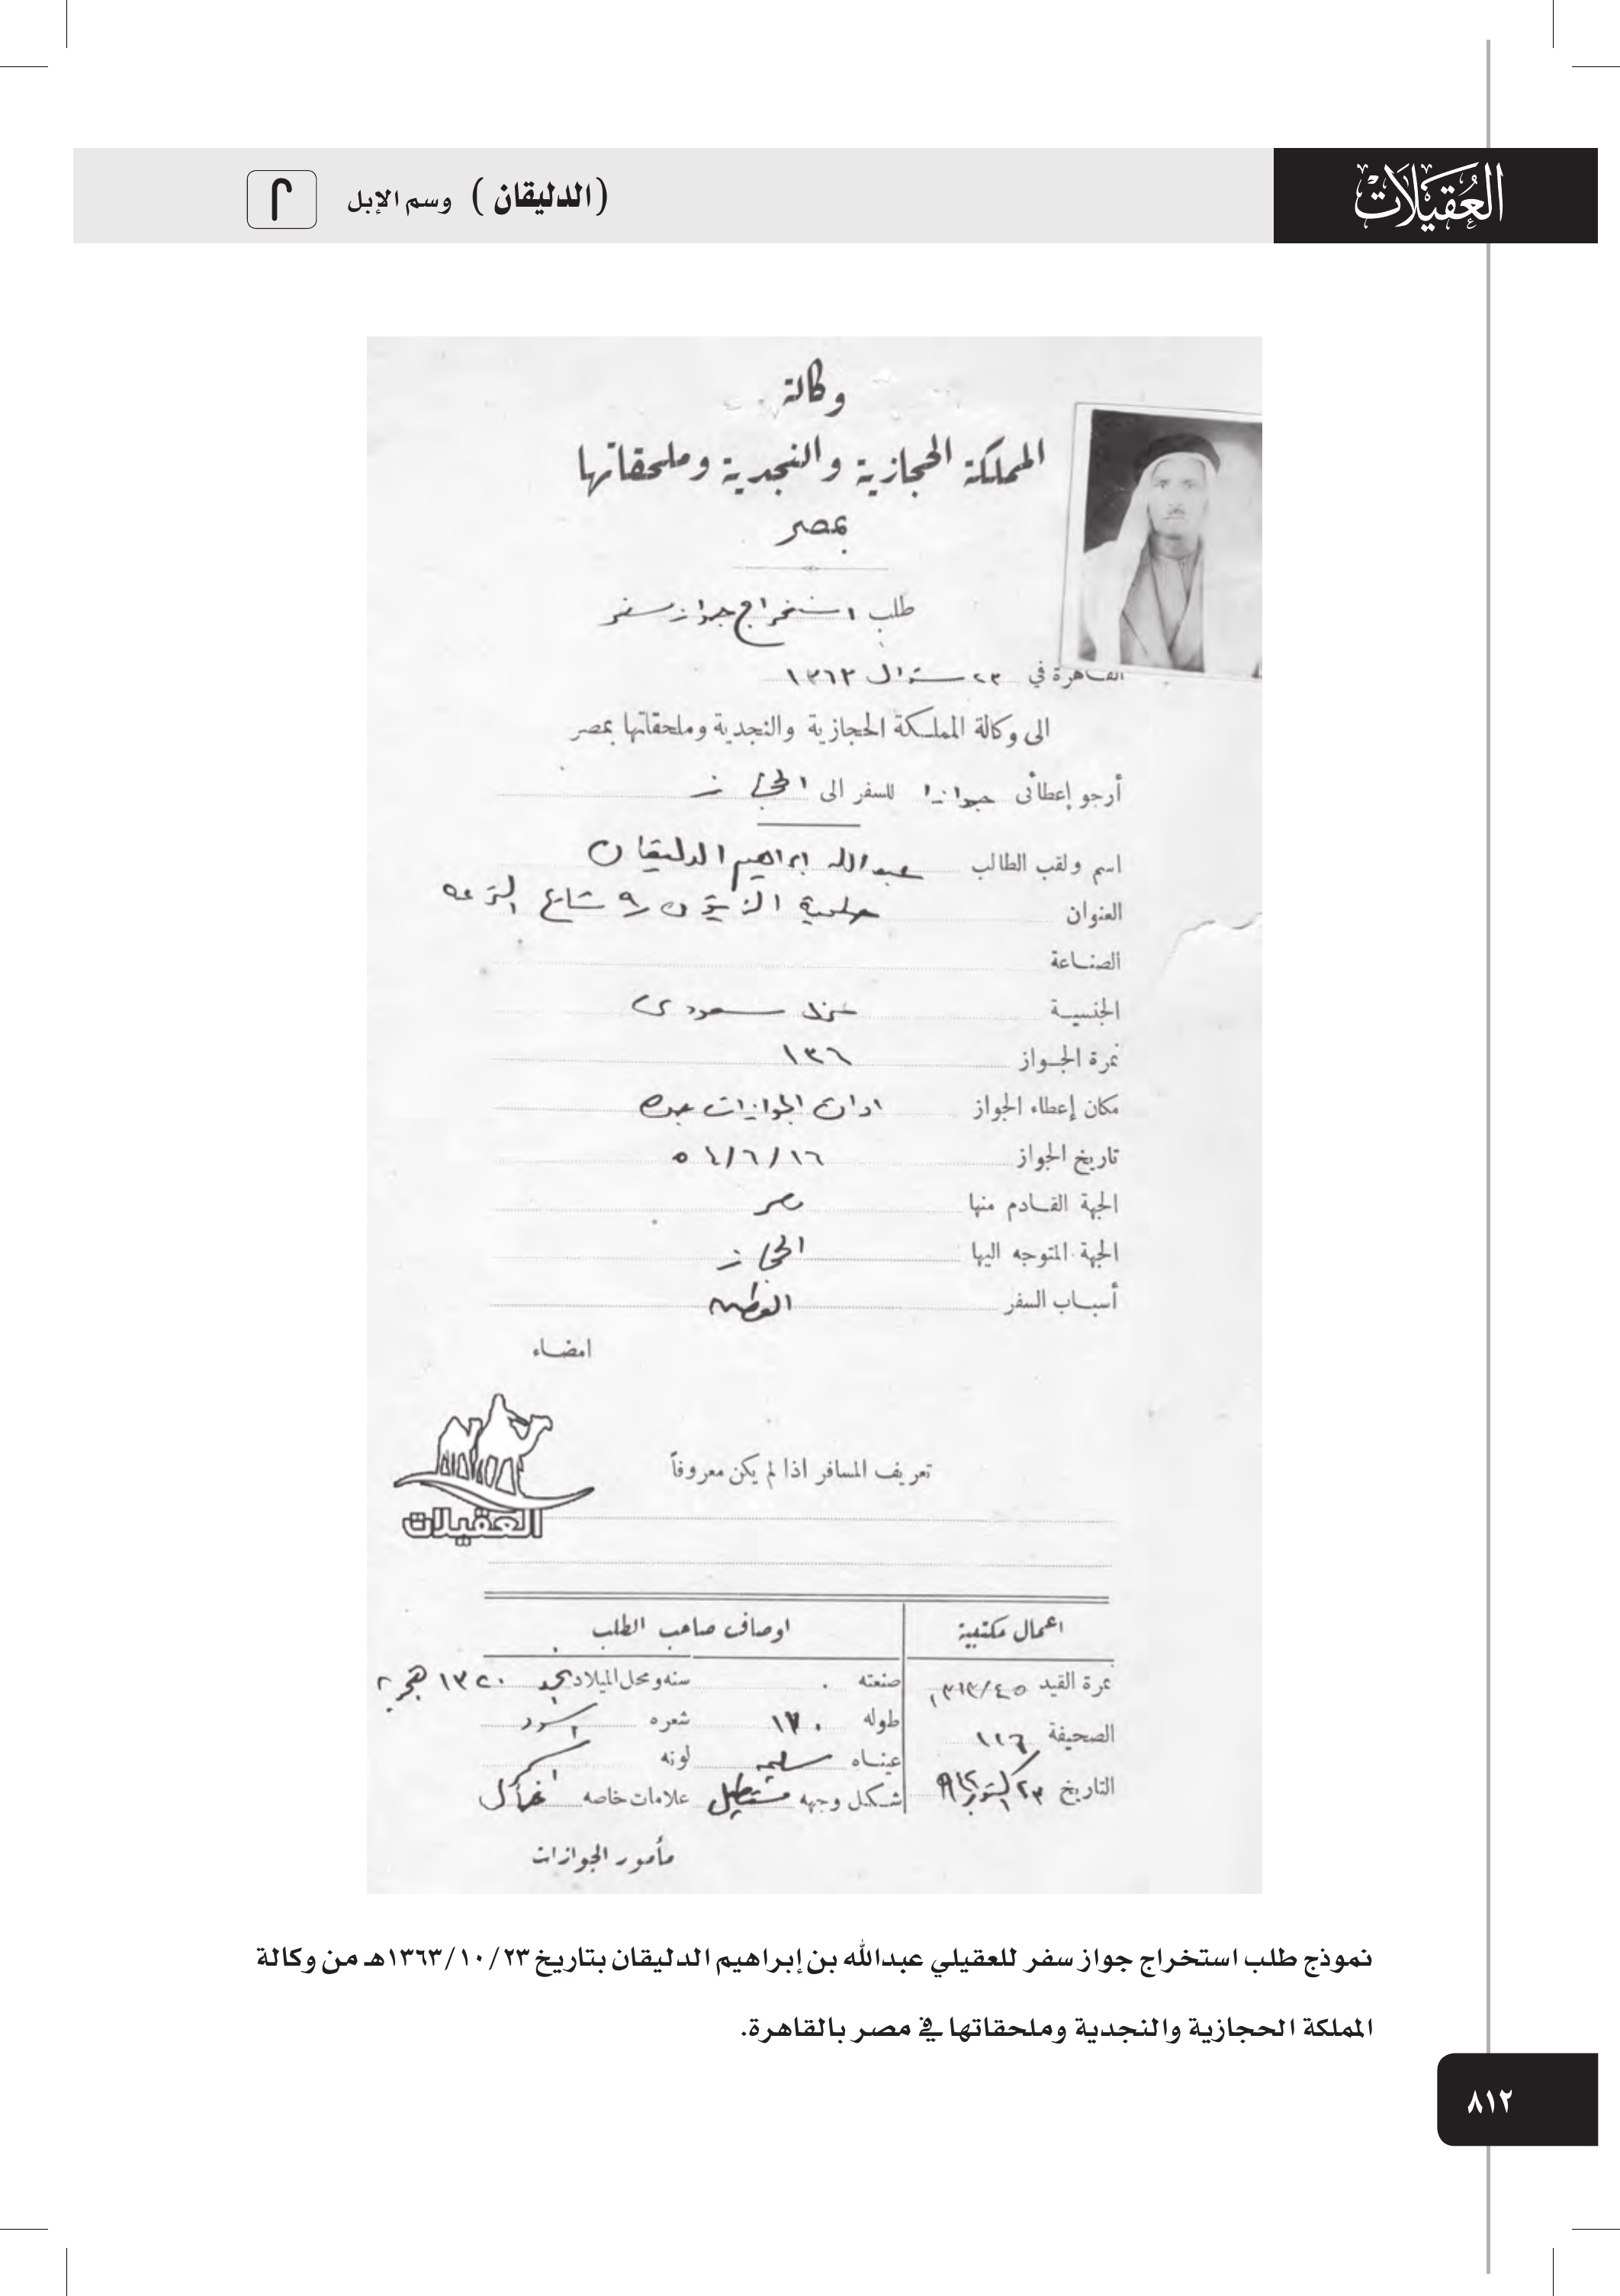 العقيلات
(الدليقان) وسم الإبل
وكالة
المملكة الحجازية والنجدية وملحقاتها
بمصر
طلب استخراج جواز سفر
القاهرة في ٢٣ شوال ١٣٦٣
الى وكالة المملكة الحجازية والنجدية وملحقاتها بمصر
أرجو إعطائى جوازا للسفر الى الحجاز
اسم ولقب الطالب عبدالله ابراهيم الدليقان
العنوان حلمية الزيتون ٩ شارع الترعه
الصناعة
الجنسية سعودى
نمرة الجواز ١٣٦
مكان إعطاء الجواز الجوازات بجده
تاريخ الجواز ١٦/٦/٥٤
الجهة القادم منها مصر
الجهة المتوجه اليها الحجاز
أسباب السفر
امضاء
تعريف المسافر اذا لم يكن معروفاً
العقيلات
اعمال مكتبية
اوصاف صاحب الطلب
نمرة القيد ٤٥/١٣٦٣ صنعته سنه ومحل الميلاد نجد ١٣٢٠
الصحيفة ١١٦ طوله ١٧٠ شعره اسود
عيناه سليمه لونه اسمر
التاريخ ٢٣ اكتوبر شكل وجهه مستطيل علامات خاصه
مأمور الجوازات
نموذج طلب استخراج جواز سفر للعقيلي عبدالله بن إبراهيم الدليقان بتاريخ ١٣٦٣/١٠/٢٣هـ من وكالة
المملكة الحجازية والنجدية وملحقاتها في مصر بالقاهرة.
٨١٢